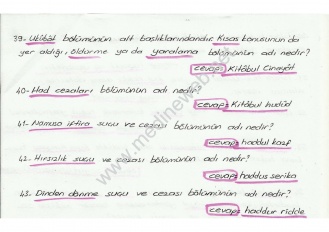 39- Ukûbât bölümünün alt başlıklarındandır Kısas konusunun da
yer aldığı, öldürme ya da yaralama bölümünün adı nedir?
cevap: Kitâbul Cinayât
40- Had cezaları bölümünün adı nedir?
cevap: Kitâbul hudûd
41- Namusa iftira suçu ve cezası bölümünün adı nedir?
cevap: haddul kazf
42- Hırsızlık suçu ve cezası bölümünün adı nedir?
cevap: haddus serika
43- Dinden dönme suçu ve cezası bölümünün adı nedir?
cevap: haddur ridde